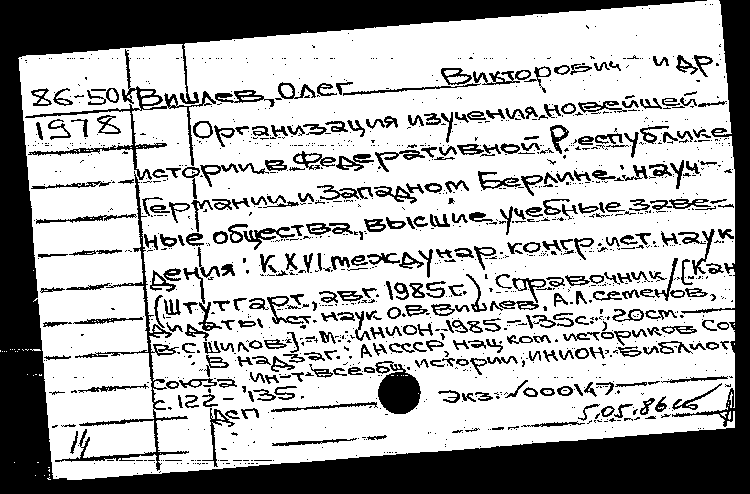 86-50К Вишлев, Олег Викторович и др.
1978 Организация изучения новейшей
истории в Федеративной Республике
Германии и Западном Берлине: науч-
ные общества, высшие учебные заве-
дения: К XVI междунар. конгр. ист. наук
(Штутгарт, авг. 1985г.): Справочник / [Кан
дидаты ист. наук О.В. Вишлев, А.Л. Семенов,
В.С. Шилов]. - М.: ИНИОН, 1985. - 135с.; 20см. -
В надзаг.: АН СССР. Нац. ком. историков Сов
союза, Ин-т всеобщ. истории, ИНИОН. Библиог
с. 122-135.
ДСП Экз. √000147.
5.05.86
14